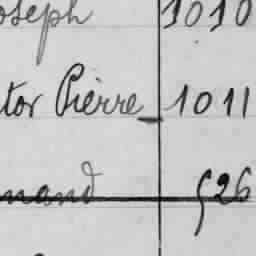 oseph 1010
tor Pierre 1011
nand 526